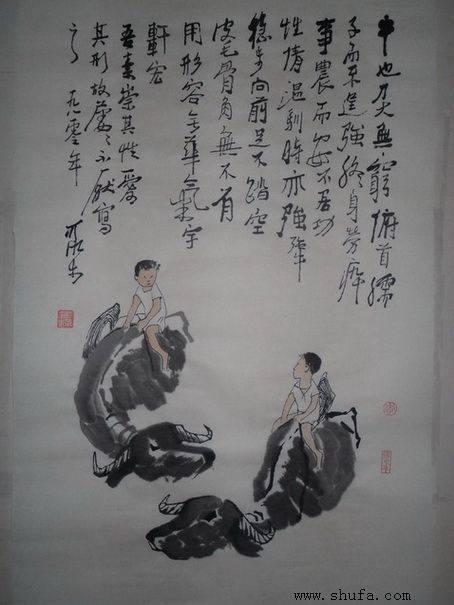 牛也力大無窮俯首孺
子而不逞强終身勞瘁
事農而安不居功
性情温馴時亦强犟
穩步向前足不踏空
皮毛骨角無不有
用形容无華氣宇
軒宏
吾素崇其性愛
其形故屢々不厭寫
之 一九八零年 可染
www.shufa.com